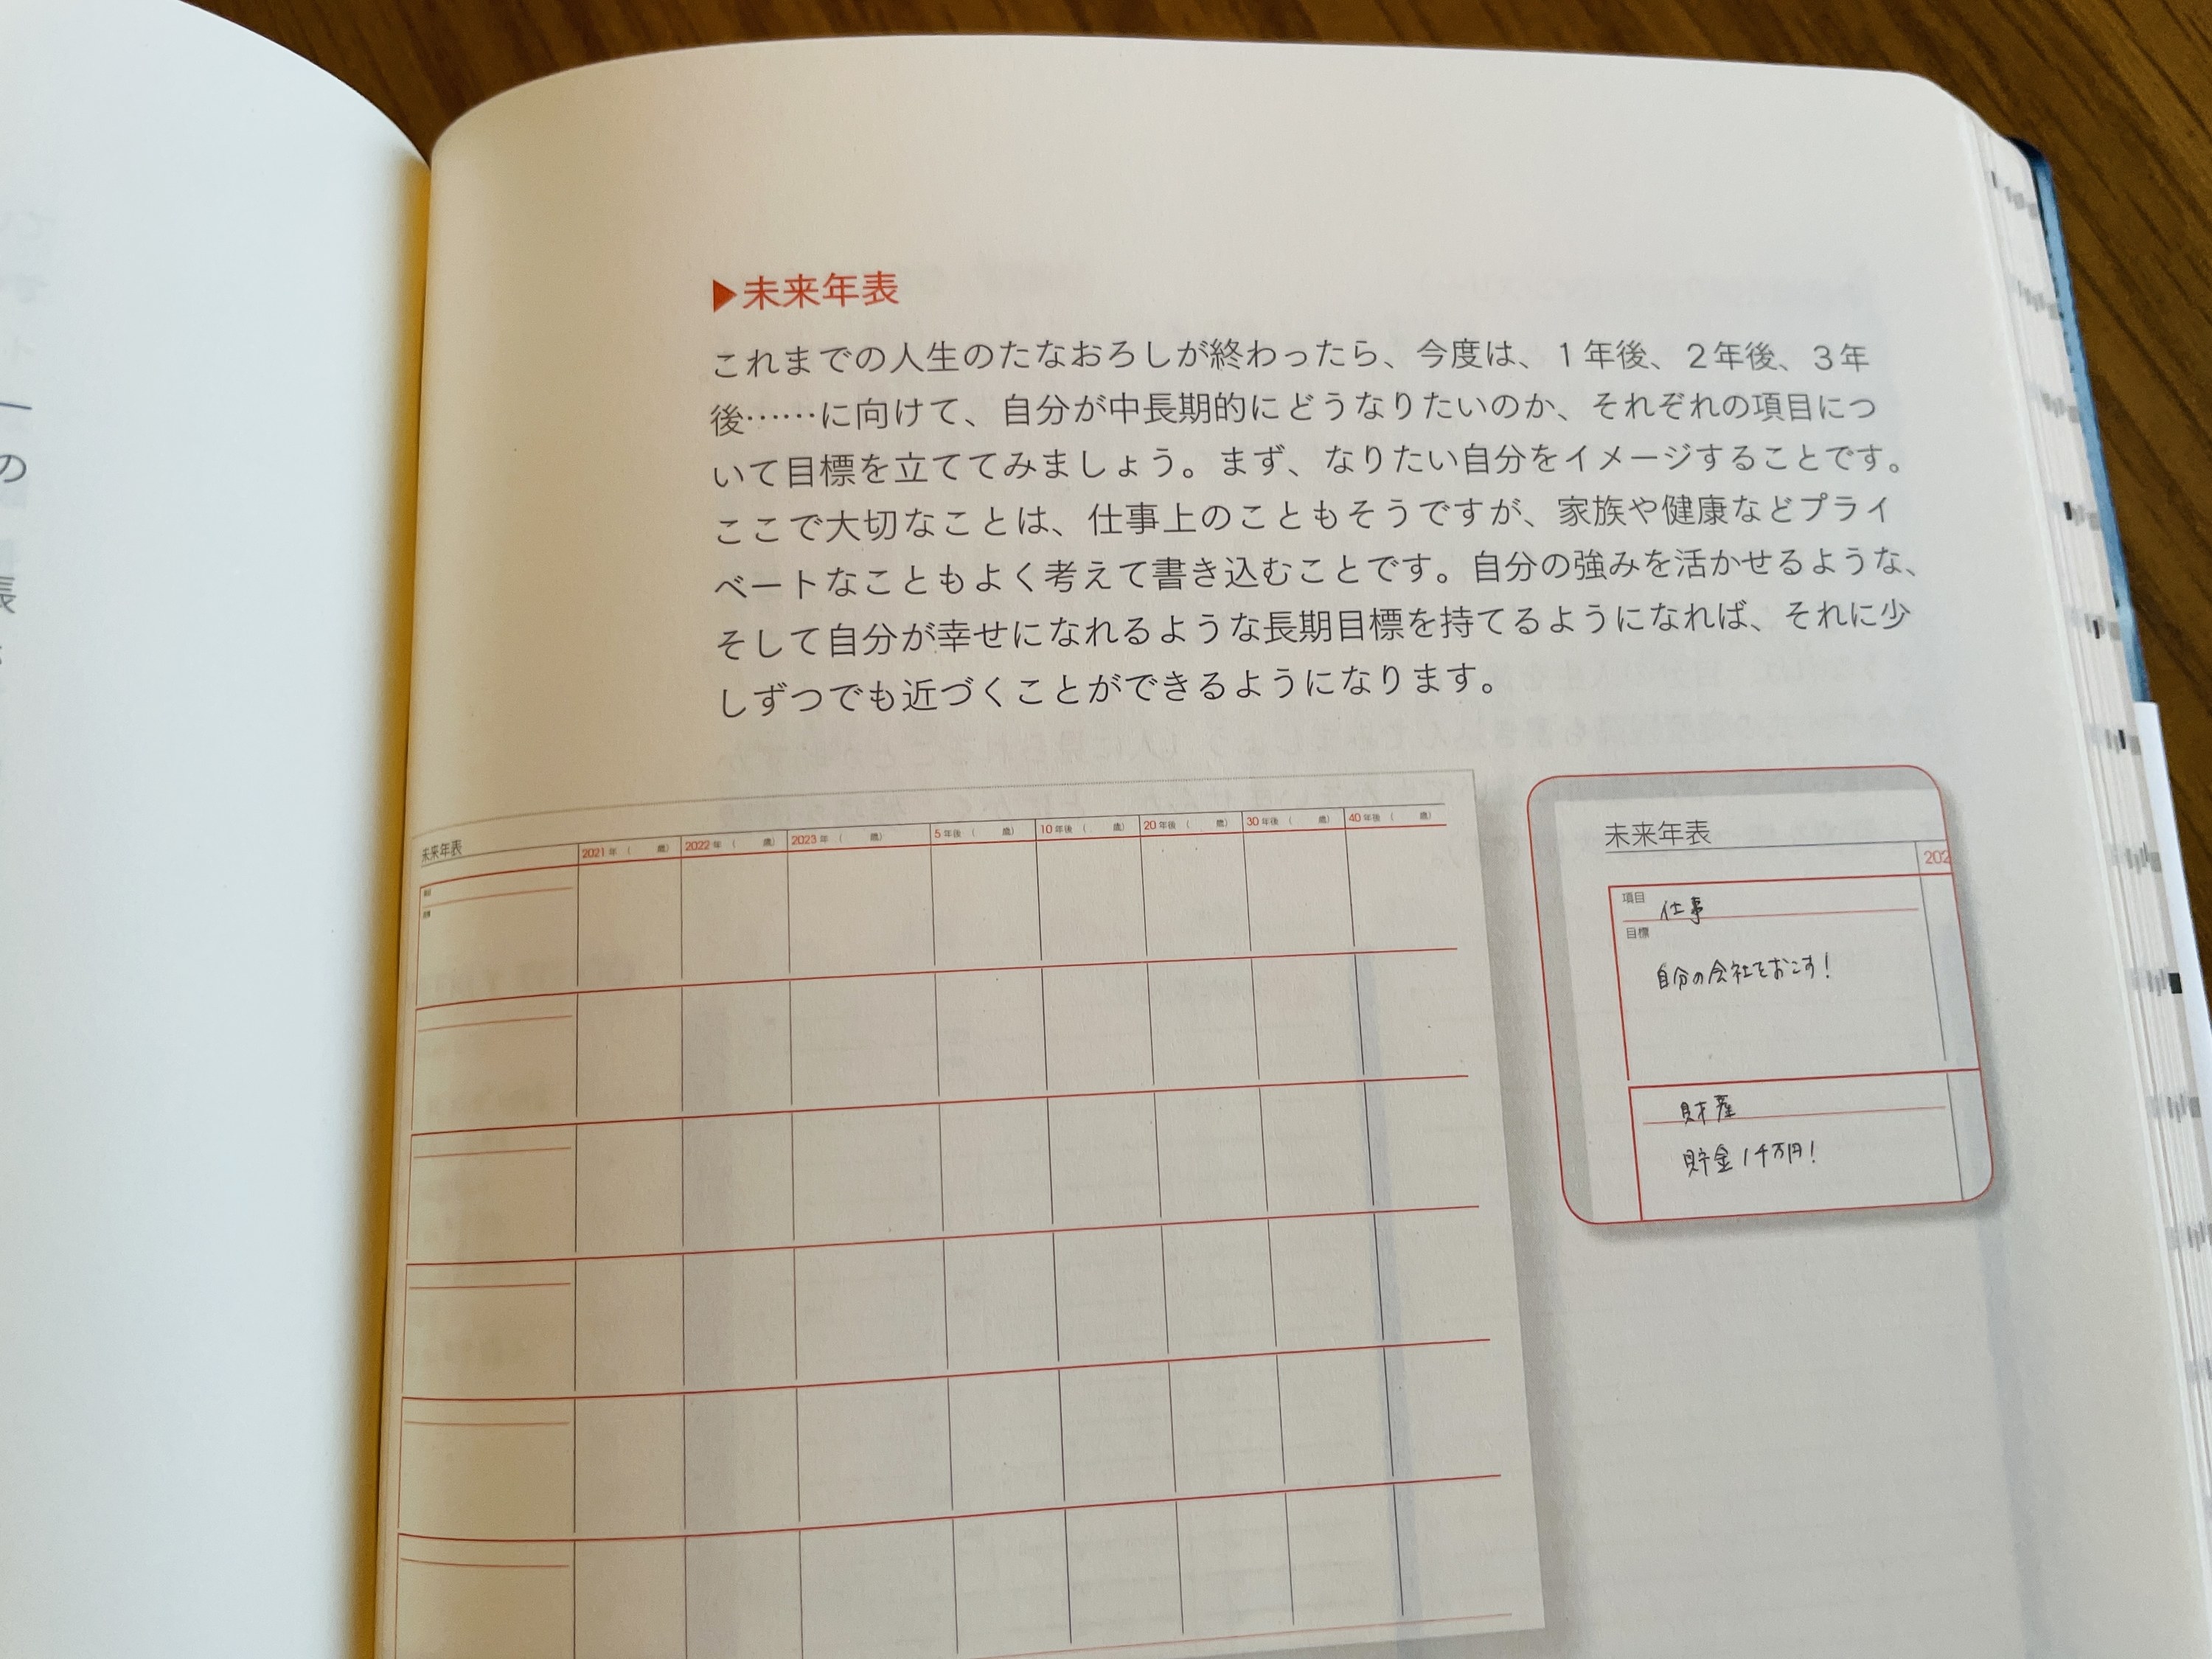 ▶未来年表
これまでの人生のたなおろしが終わったら、今度は、1年後、2年後、3年
後……に向けて、自分が中長期的にどうなりたいのか、それぞれの項目につ
いて目標を立ててみましょう。まず、なりたい自分をイメージすることです。
ここで大切なことは、仕事上のこともそうですが、家族や健康などプライ
ベートなこともよく考えて書き込むことです。自分の強みを活かせるような、
そして自分が幸せになれるような長期目標を持てるようになれば、それに少
しずつでも近づくことができるようになります。
未来年表
2021年（　歳） 2022年（　歳） 2023年（　歳） 5年後（　歳） 10年後（　歳） 20年後（　歳） 30年後（　歳） 40年後（　歳）
項目
目標
未来年表
202
項目 仕事
目標
自分の会社をおこす!
財産
貯金1千万円!
の